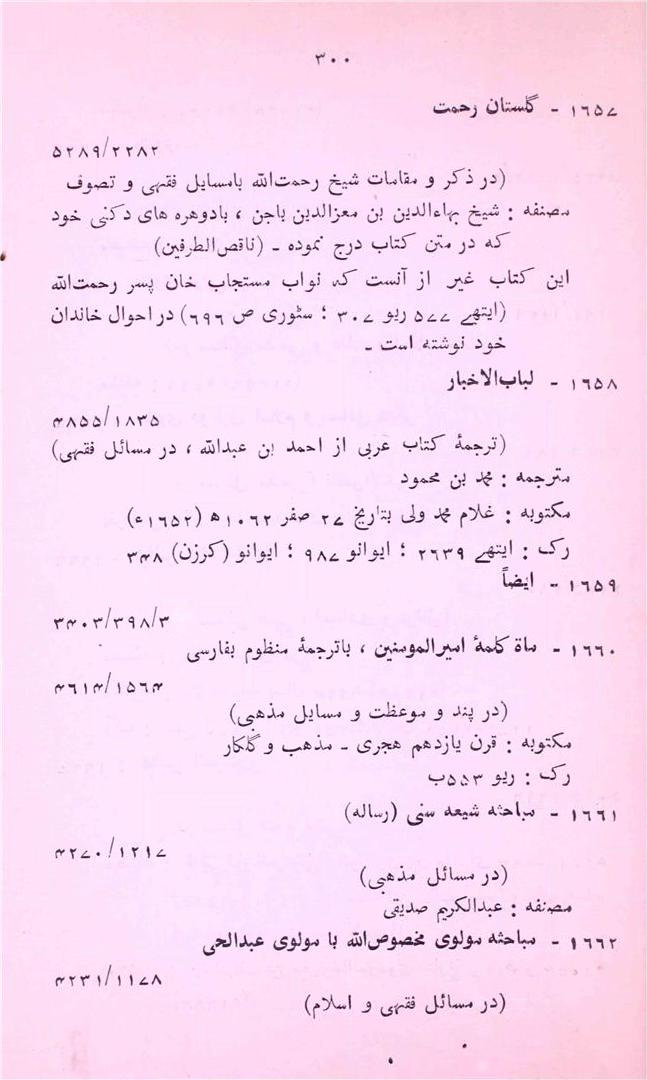 ۳۰۰
۱۶۵۷ - گلستان رحمت
۵۲۸۹/۲۲۸۲
(در ذکر و مقامات شیخ رحمت‌الله بامسایل فقهی و تصوف
مصنفه : شیخ بهاءالدین بن معزالدین باجن ، بادوهره های دکنی خود
که در متن کتاب درج نموده - (ناقص‌الطرفین)
این کتاب غیر از آنست که نواب مستجاب خان پسر رحمت‌الله
(ایتھے ۵۷۷ ریو ۳۰۷ ؛ سٹوری ص ۶۹۶) در احوال خاندان
خود نوشته است -
۱۶۵۸ - لباب‌الاخبار
۴۸۵۵/۱۸۳۵
(ترجمهٔ کتاب عربی از احمد بن عبدالله ، در مسائل فقهی)
مترجمه : محمد بن محمود
مکتوبه : غلام محمد ولی بتاریخ ۲۷ صفر ۱۰۶۲ھ (۱۶۵۲ء)
رک : ایتھے ۲۶۳۹ ؛ ایوانو ۹۸۷ ؛ ایوانو (کرزن) ۳۴۸
۱۶۵۹ - ایضاً
۳۴۰۳/۳۹۸/۳
۱۶۶۰ - ماة کلمهٔ امیرالمومنین ، باترجمهٔ منظوم بفارسی
۴۶۱۴/۱۵۶۴
(در پند و موعظت و مسایل مذهبی)
مکتوبه : قرن یازدهم هجری - مذهب و گلکار
رک : ریو ۵۵۳ب
۱۶۶۱ - مباحثه شیعه سنی (رساله)
۴۲۷۰/۱۲۱۷
(در مسائل مذهبی)
مصنفه : عبدالکریم صدیقی
۱۶۶۲ - مباحثه مولوی مخصوص‌الله با مولوی عبدالحی
۴۲۳۱/۱۱۷۸
(در مسائل فقهی و اسلام)